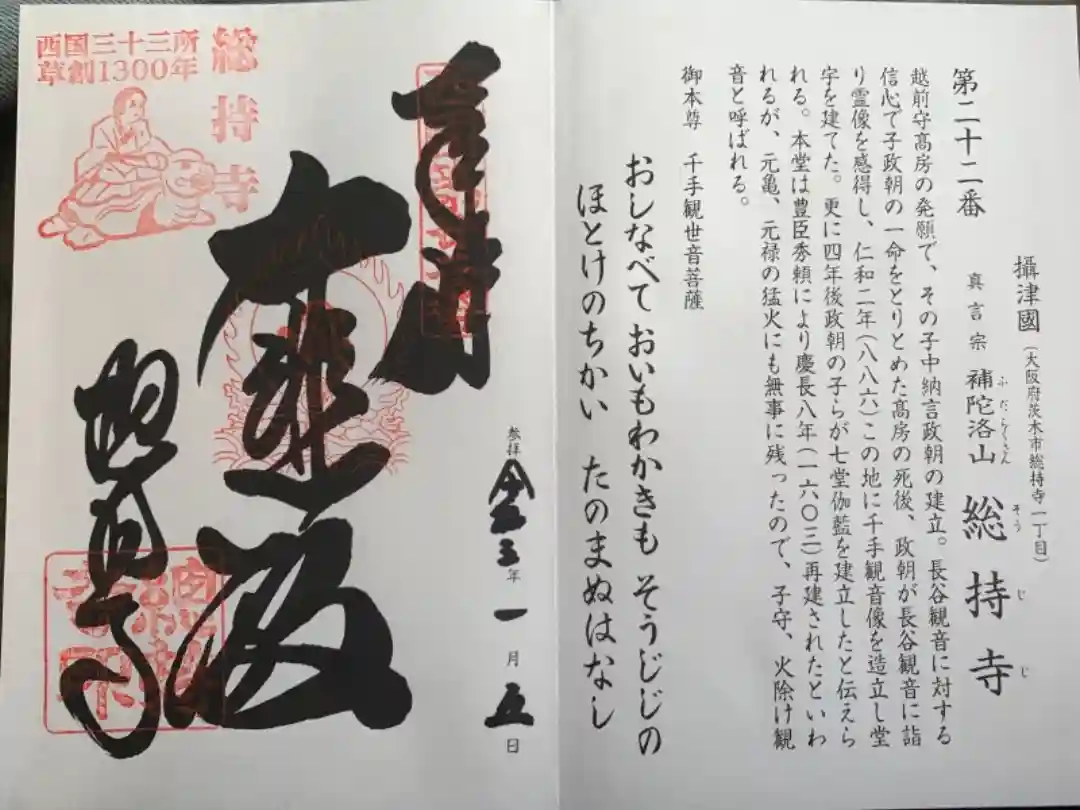 攝津國(大阪府茨木市総持寺一丁目)
真言宗 補陀洛山 総持寺
ふだらくさん そうじじ
第二十二番
越前守髙房の発願で、その子中納言政朝の建立。長谷観音に対する
信心で子政朝の一命をとりとめた髙房の死後、政朝が長谷観音に詣
り霊像を感得し、仁和二年(八八六)この地に千手観音像を造立し堂
宇を建てた。更に四年後政朝の子らが七堂伽藍を建立したと伝えら
れる。本堂は豊臣秀頼により慶長八年(一六〇三)再建されたといわ
れるが、元亀、元禄の猛火にも無事に残ったので、子守、火除け観
音と呼ばれる。
御本尊 千手観世音菩薩
おしなべて おいもわかきも そうじじの
ほとけのちかい たのまぬはなし
参拝 令和三年一月五日
大悲殿
総持寺
総持寺
西国三十三所
草創1300年